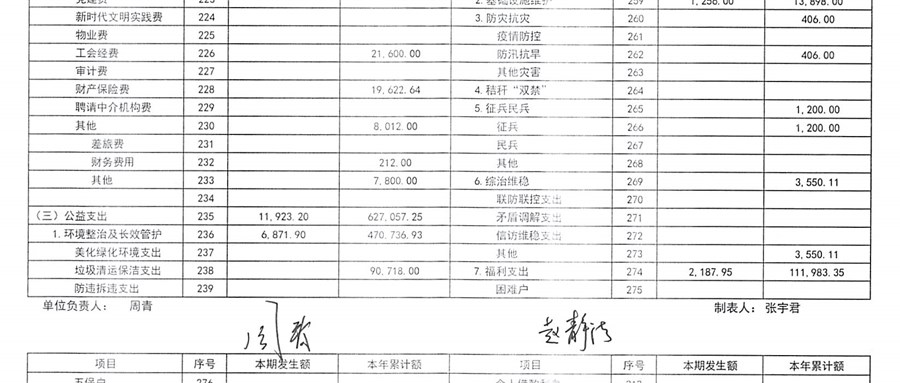 党建费 223 2. 基础设施维护 259 1,256.00 13,898.00
新时代文明实践费 224 3. 防灾抗灾 260 406.00
物业费 225 疫情防控 261
工会经费 226 21,600.00 防汛抗旱 262 406.00
审计费 227 其他灾害 263
财产保险费 228 19,622.64 4. 秸秆“双禁” 264
聘请中介机构费 229 5. 征兵民兵 265 1,200.00
其他 230 8,012.00 征兵 266 1,200.00
差旅费 231 民兵 267
财务费用 232 212.00 其他 268
其他 233 7,800.00 6. 综治维稳 269 3,550.11
234 联防联控支出 270
(三)公益支出 235 11,923.20 627,057.25 矛盾调解支出 271
1. 环境整治及长效管护 236 6,871.90 470,736.93 信访维稳支出 272
美化绿化环境支出 237 其他 273 3,550.11
垃圾清运保洁支出 238 90,718.00 7. 福利支出 274 2,187.95 111,983.35
防违拆违支出 239 困难户 275
单位负责人: 周青 制表人: 张宇君
项目 序号 本期发生额 本年累计额 项目 序号 本期发生额 本年累计额
五保户 276